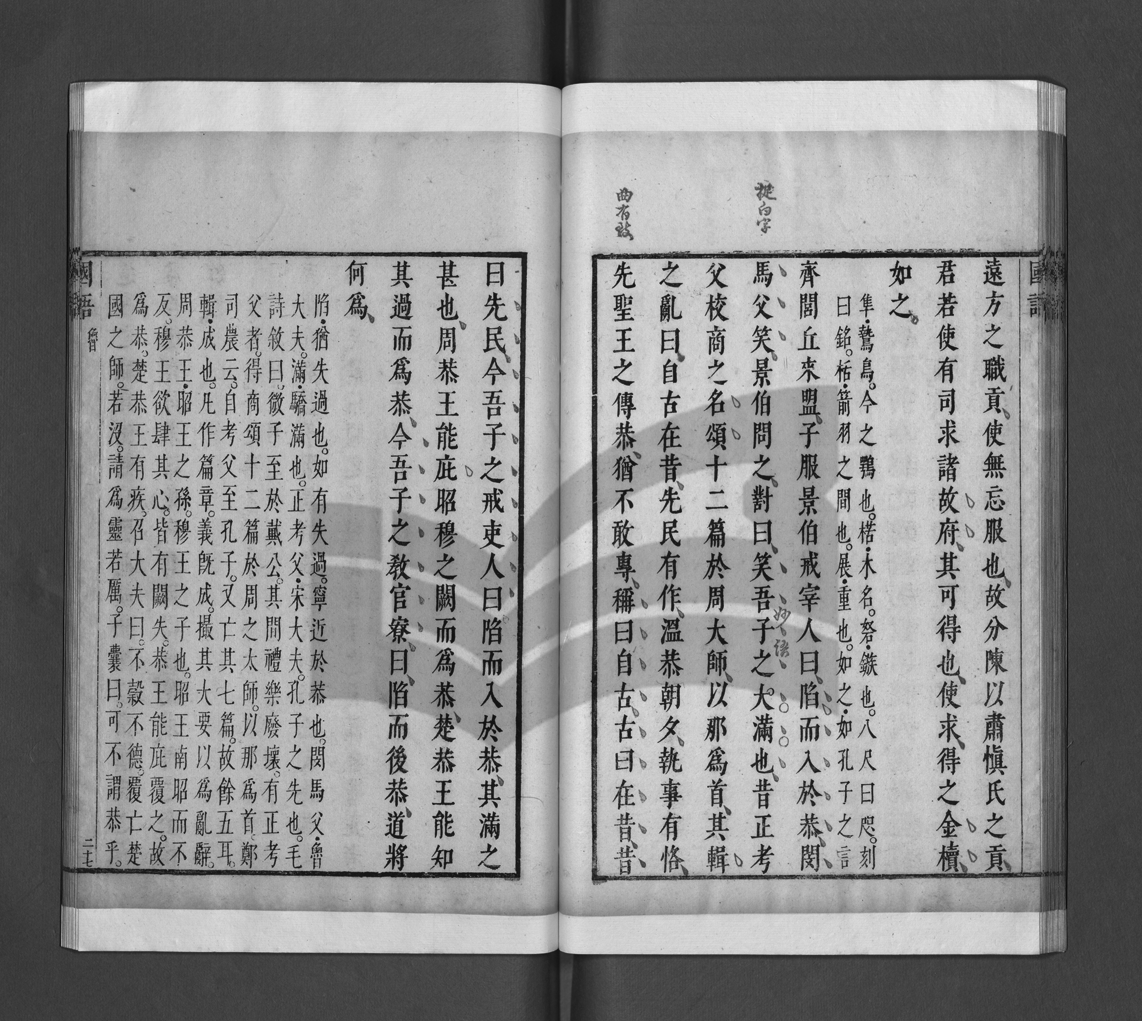 遠方之職貢使無忘服也故分陳以肅愼氏之貢
君若使有司求諸故府其可得也使求得之金櫝
如之
隼鷙鳥今之鶚也楛木名砮鏃也八尺曰咫刻
曰銘栝箭羽之間也展重也如之如孔子之言
齊閭丘來盟子服景伯戒宰人曰陷而入於恭閔
馬父笑景伯問之對曰笑吾子之大滿也昔正考
父校商之名頌十二篇於周大師以那爲首其輯
之亂曰自古在昔先民有作溫恭朝夕執事有恪
先聖王之傳恭猶不敢專稱曰自古古曰在昔昔
曰先民今吾子之戒吏人曰陷而入於恭其滿之
甚也周恭王能庇昭穆之闕而爲恭楚恭王能知
其過而爲恭今吾子之敎官寮曰陷而後恭道將
何爲
陷猶失過也如有失過寧近於恭也閔馬父魯
大夫滿驕滿也正考父宋大夫孔子之先也毛
詩敘曰微子至於戴公其間禮樂廢壞有正考
父者得商頌十二篇於周之太師以那爲首鄭
司農云自考父至孔子又亡其七篇故餘五耳
輯成也凡作篇章義旣成撮其大要以爲亂辭
周恭王昭王之孫穆王之子也昭王南昭而不
反穆王欲肆其心皆有闕失恭王能庇覆之故
爲恭楚恭王有疾召大夫曰不穀不德覆亡楚
國之師若沒請爲靈若厲子囊曰可不謂恭乎
國語
魯
二十七
國語
白字
曲有致
妙語